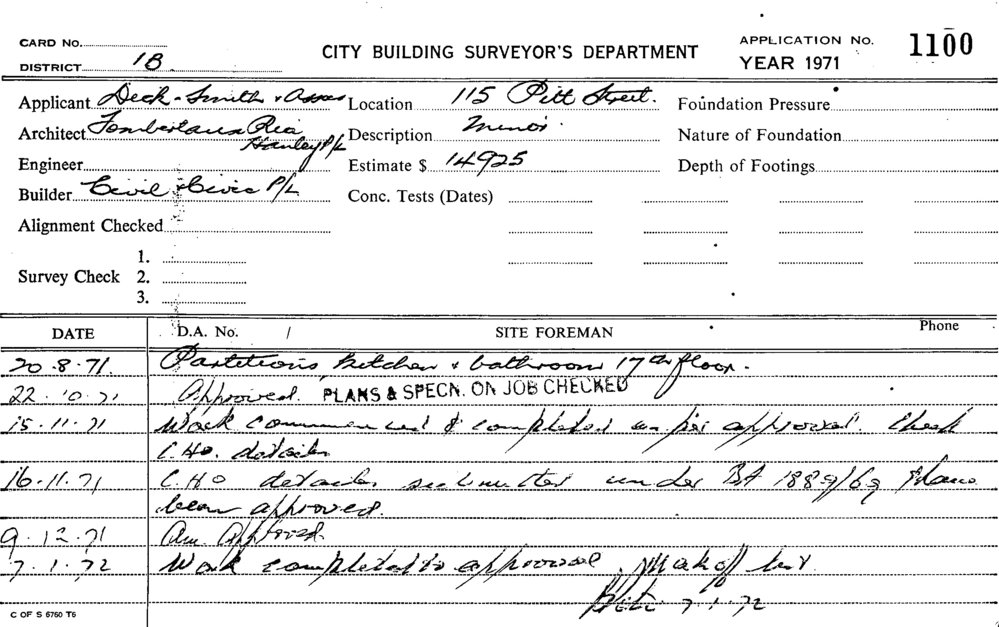 CARD No.
DISTRICT 1B
CITY BUILDING SURVEYOR'S DEPARTMENT
APPLICATION No. 1100
YEAR 1971
Applicant Deck-Smith & Assoc
Architect Hanley P/L
Engineer
Builder Civil & Civic P/L
Alignment Checked
Survey Check
1.
2.
3.
Location 115 Pitt Street.
Description Minor.
Estimate $ 14925
Conc. Tests (Dates)
Foundation Pressure
Nature of Foundation
Depth of Footings
DATE D.A. No. / SITE FOREMAN Phone
20.8.71 Partitions kitchen & bathroom 17th floor.
22.10.71 Approved. PLANS & SPECN. ON JOB CHECKED
15.11.71 Work commenced & completed as per approval. Check
C.Ho. details
16.11.71 C.H.O details submitted under BA 1889/69 & have
been approved.
9.12.71 Am. Approved.
7.1.72 Work completed to approval. Mark off
7.1.72
C OF S 6760 T6